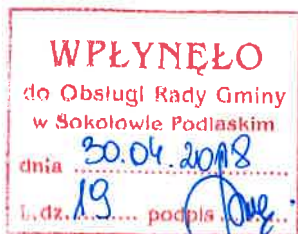 WPŁYNĘŁO
do Obsługi Rady Gminy
w Sokołowie Podlaskim
dnia 30.04.2018
L.dz. 19 podpis